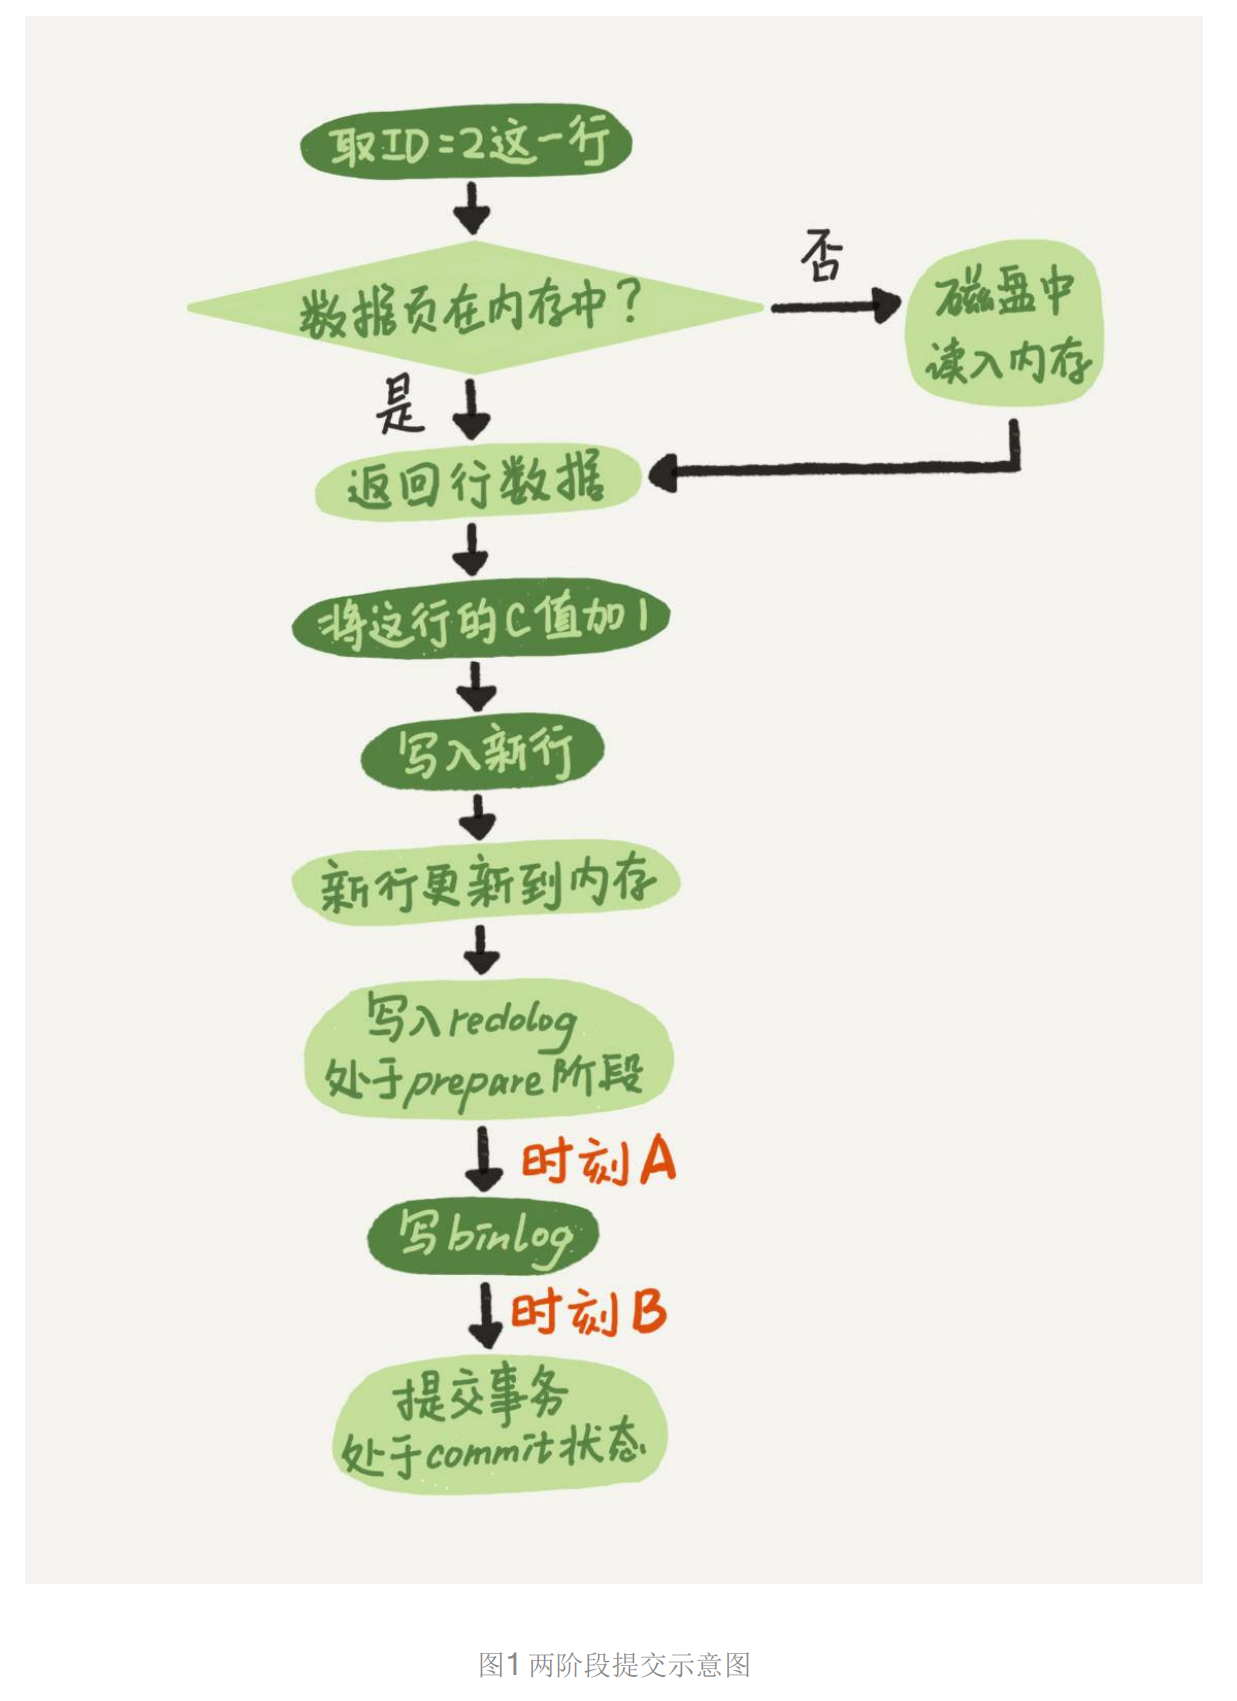 取ID=2这一行
数据页在内存中？
否
磁盘中
读入内存
是
返回行数据
将这行的C值加1
写入新行
新行更新到内存
写入redolog
处于prepare阶段
时刻A
写binlog
时刻B
提交事务
处于commit状态
图1 两阶段提交示意图